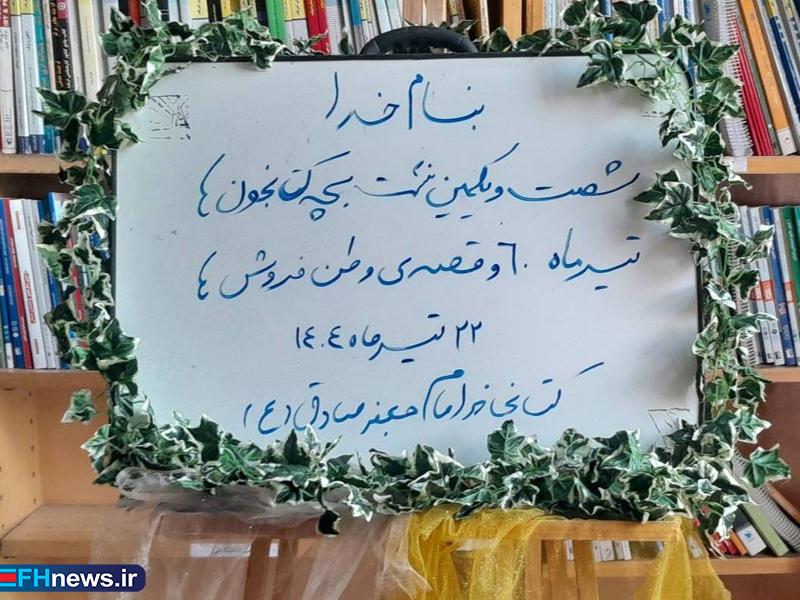 بنام خدا
شصت و یکمین نشست بچه کتابخون ها
تیرماه ٦٠ و قصه ی وطن فروش ها
٢٢ تیرماه ١٤٠٤
کتابخانه امام جعفر صادق (ع)
EFHnews.ir